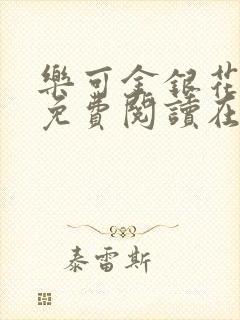 樂可金銀花
免費閱讀在
泰雷斯